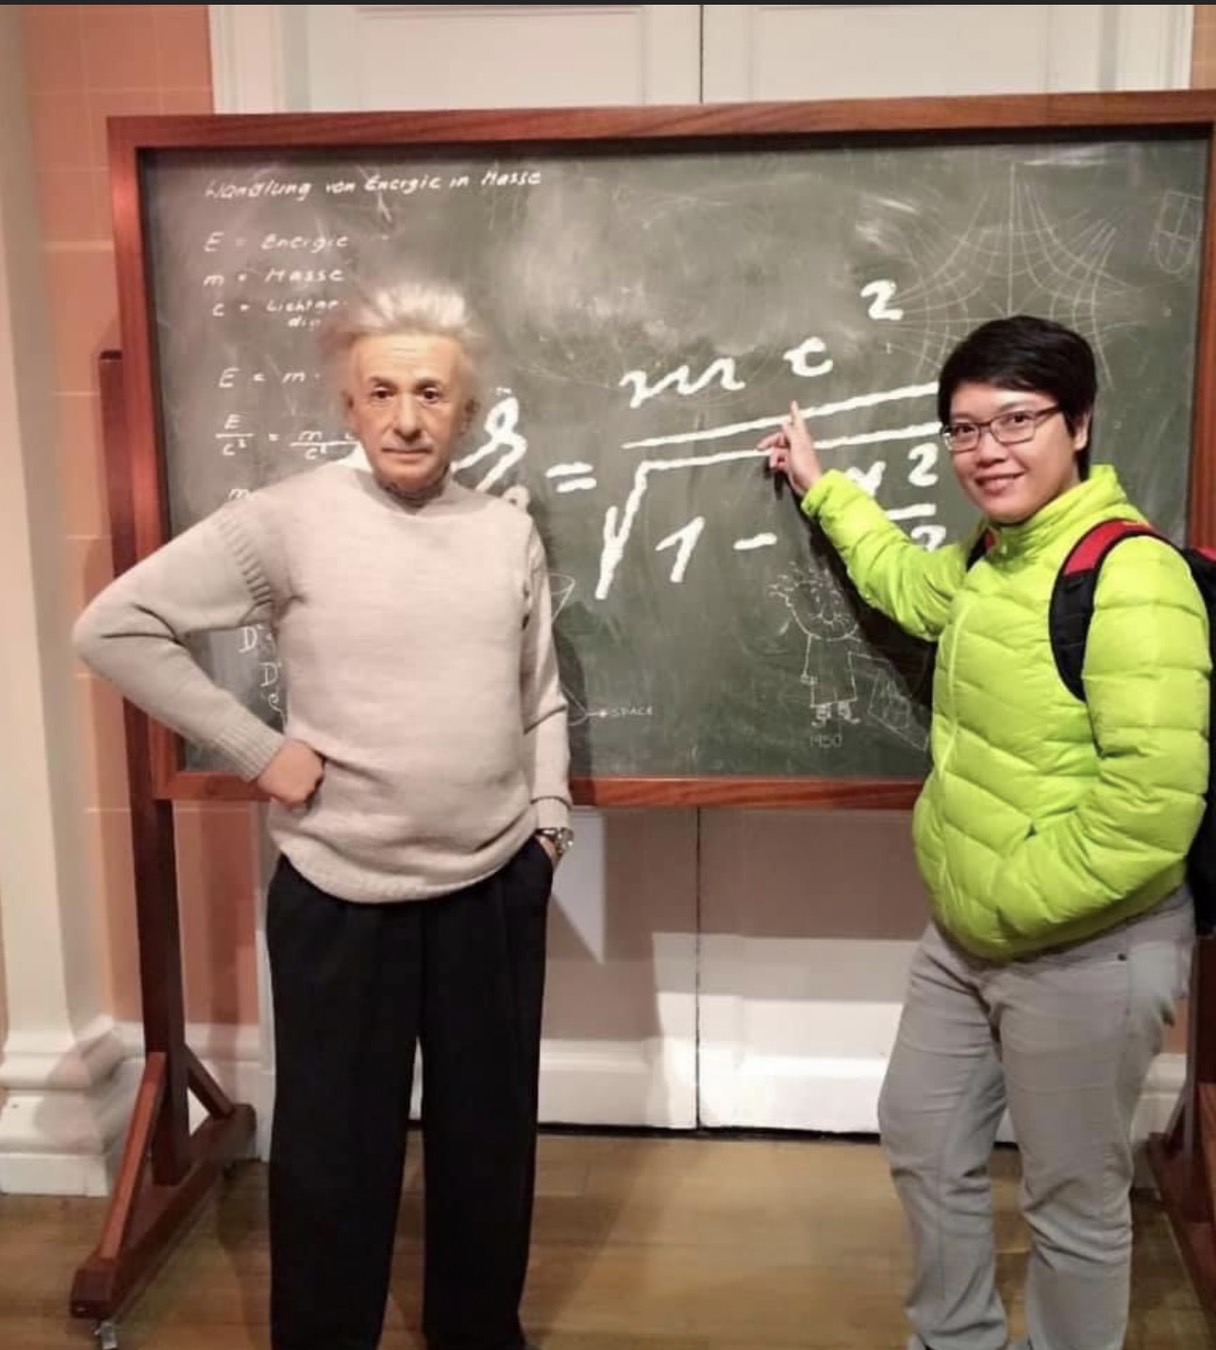 Wandlung von Energie in Masse
E = Energie
m = Masse
c = Lichtge
E = m
E/c² = m c
m
= mc² / √1 - v²/2
D
D
SPACE
1930